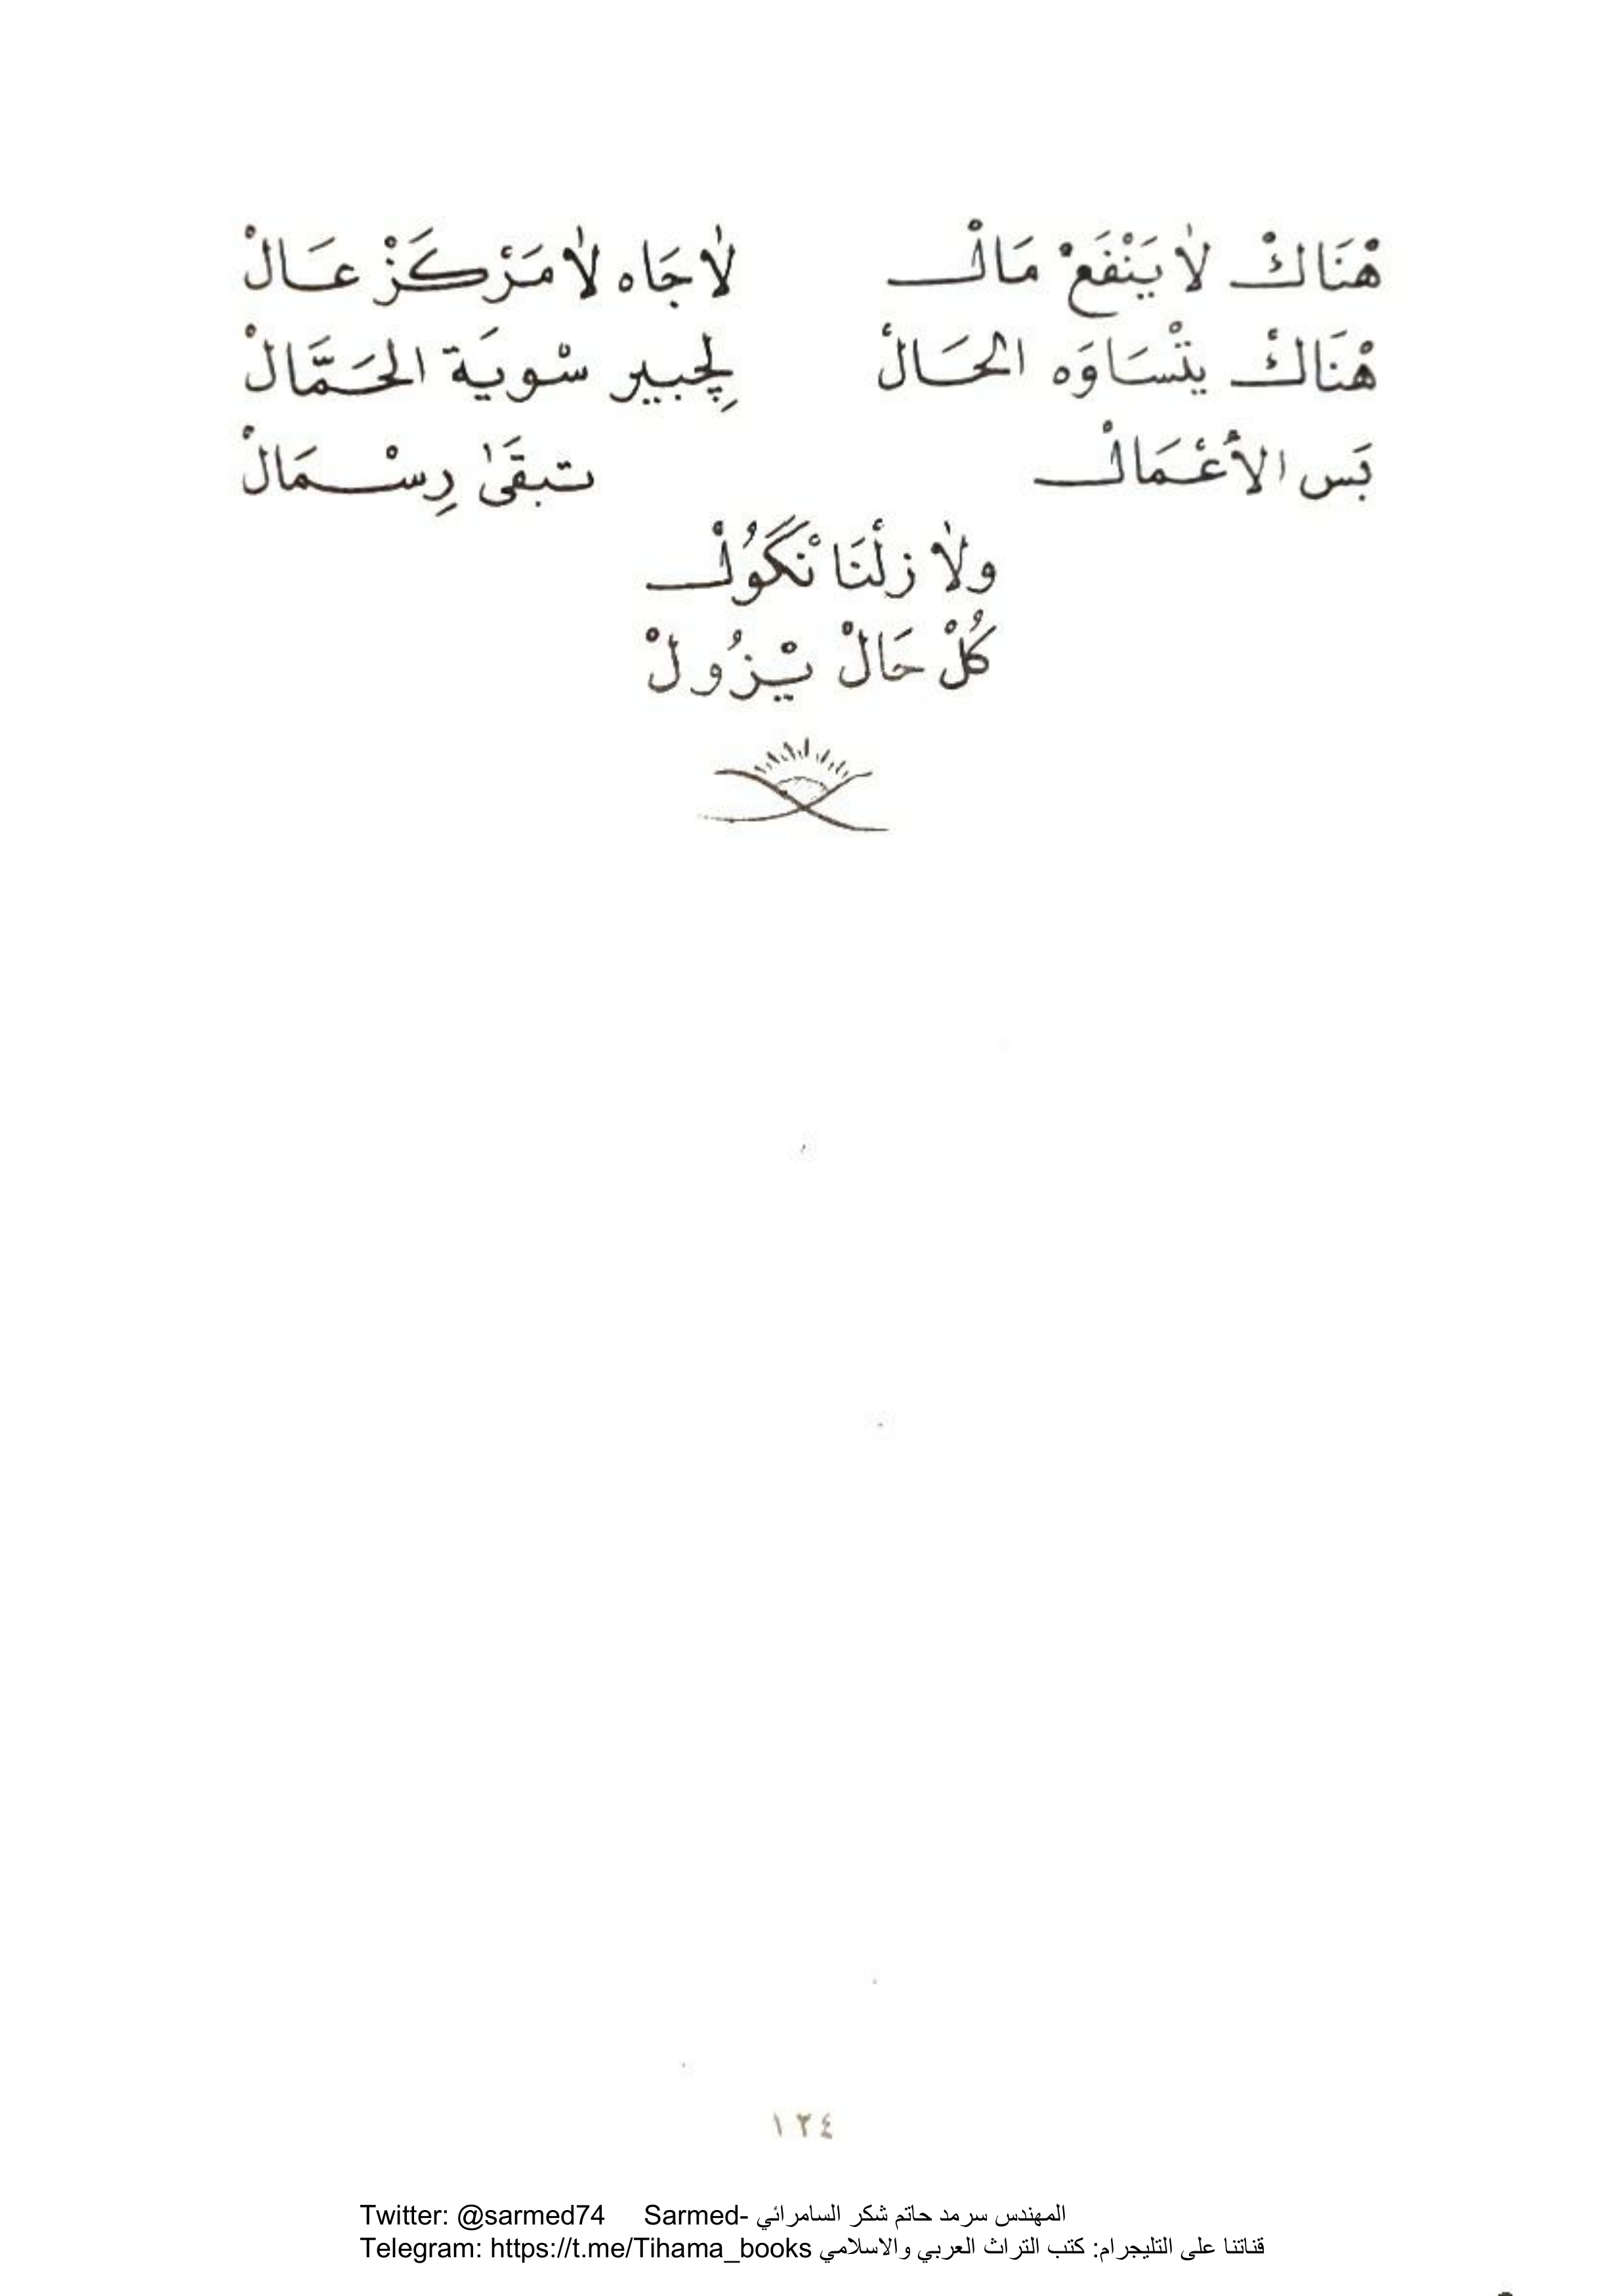 هْنَاكْ لَا يَنْفَعْ مَالْ لَا جَاه لَا مَرْكَزْ عَالْ
هْنَاكْ يتْسَاوَه الحَالْ لِچبير سْويَة الحَمَّالْ
بَس الأَعْمَالْ تبقَى رِسْمَالْ
ولَا زلْنَا نْگُولْ
كُلْ حَالْ يْزُولْ
١٢٤
Twitter: @sarmed74 Sarmed- المهندس سرمد حاتم شكر السامرائي
Telegram: https://t.me/Tihama_books قناتنا على التليجرام: كتب التراث العربي والاسلامي